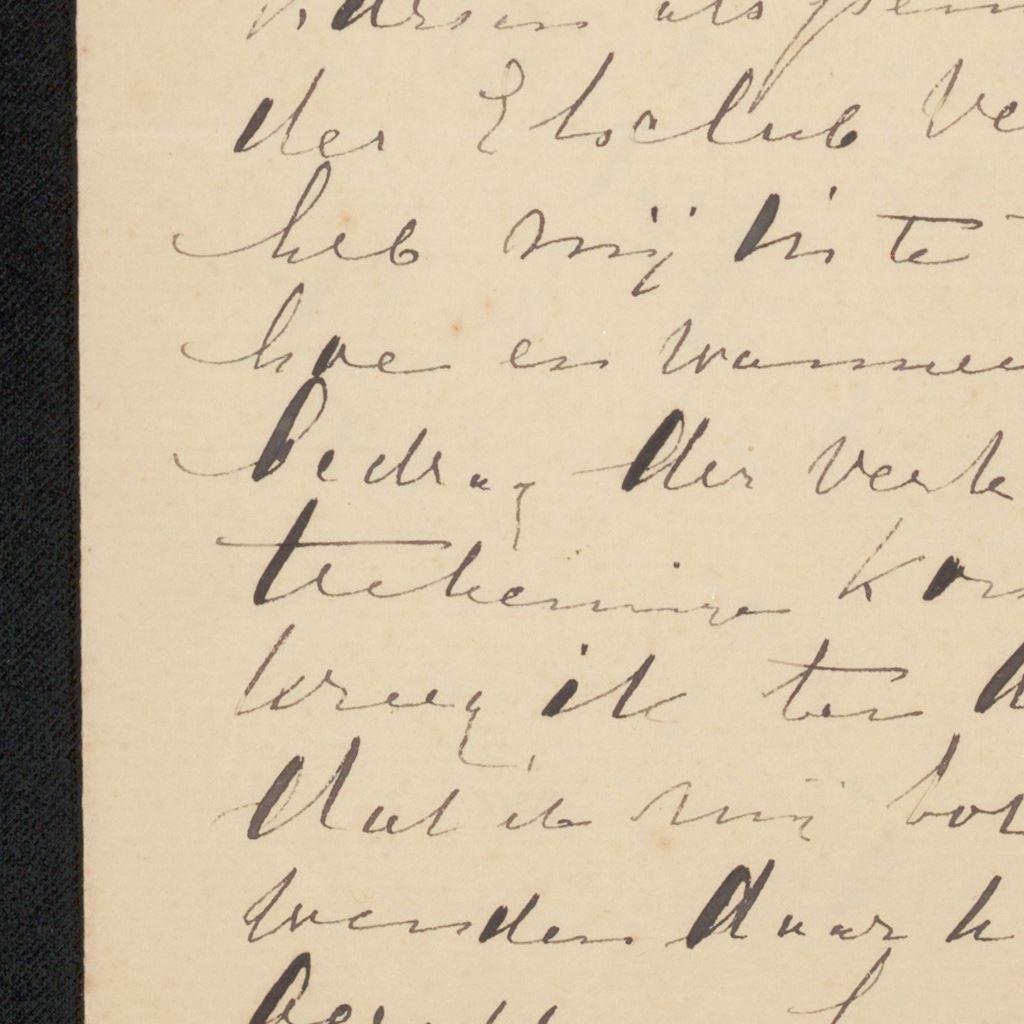 der Etsclub Ve
heb mij in te
hoe en wannee
bedrag der verk
teekeninge kon
kreeg ik ten d
dat ik mij tot
wenden daar h